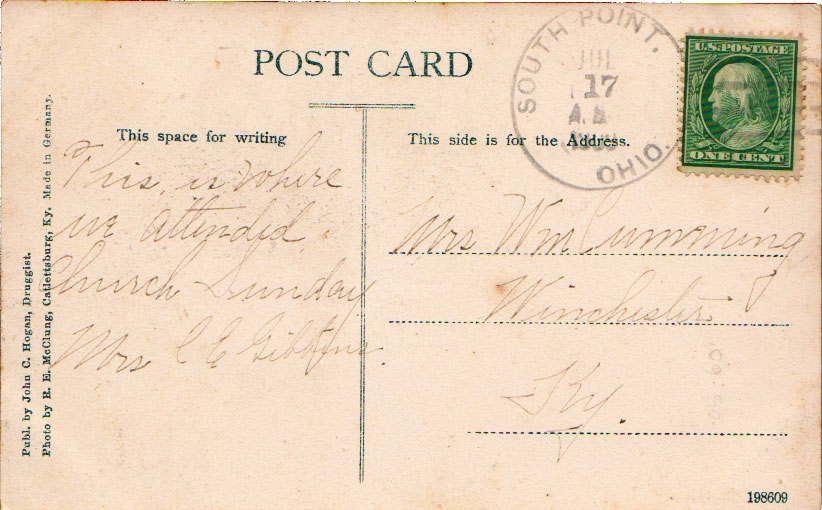 POST CARD
SOUTH POINT,
JUL
17
A.M.
OHIO.
U.S. POSTAGE
ONE CENT
This space for writing
This side is for the Address.
This is where
we attended
Church Sunday
Mrs C C Gibbins.
Mrs Wm Cumming
Winchester
Ky.
Publ. by John C. Hogan, Druggist.
Photo by R. E. McClung, Catlettsburg, Ky. Made in Germany.
198609